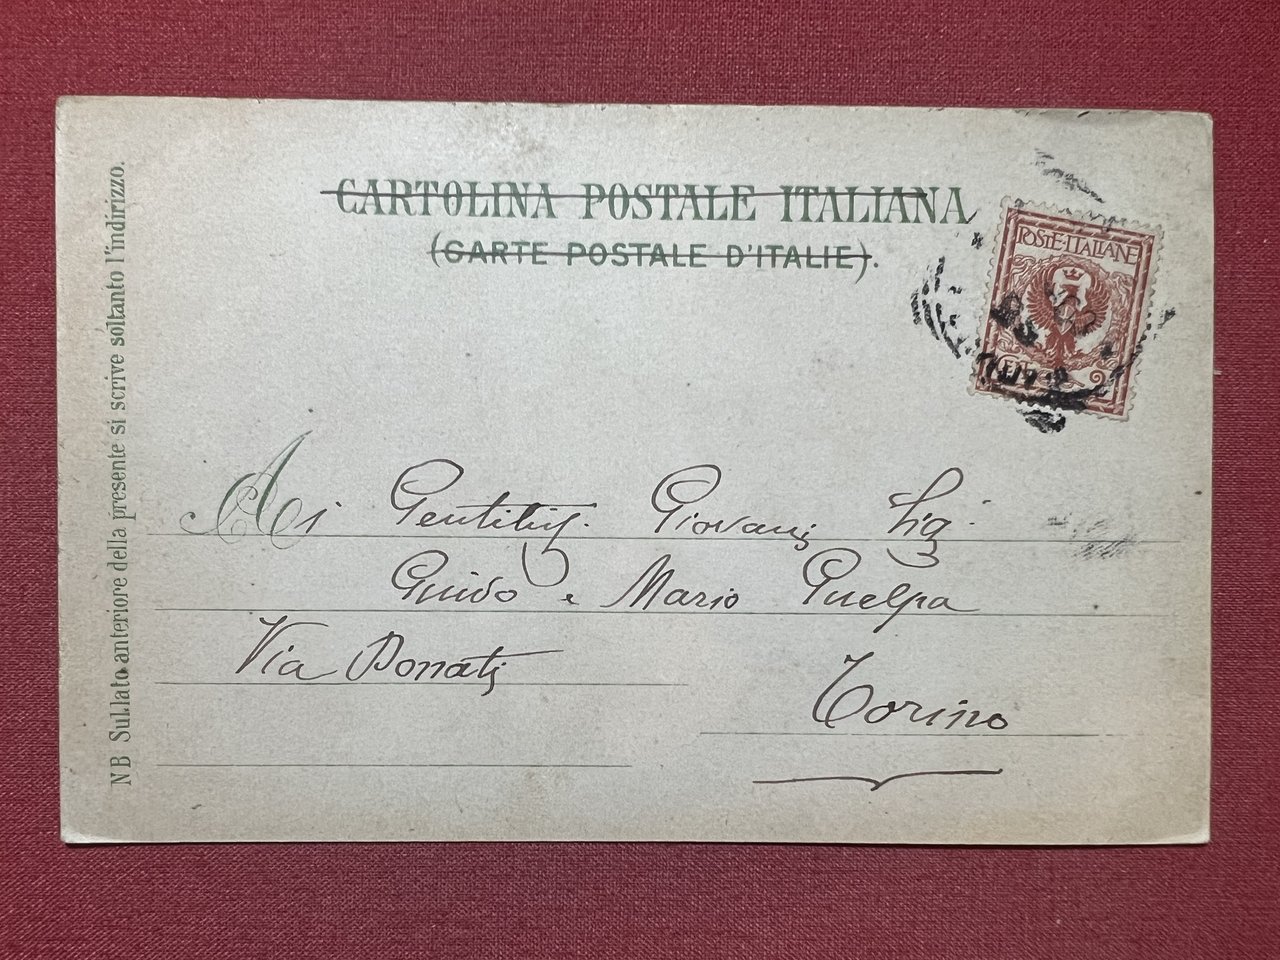 CARTOLINA POSTALE ITALIANA
(CARTE POSTALE D'ITALIE).
POSTE·ITALIANE
CENT. 2
Ai Gentiliss. Giovani Sig.
Guido e Mario Guelpa
Via Donati
Torino
NB Sul lato anteriore della presente si scrive soltanto l'indirizzo.